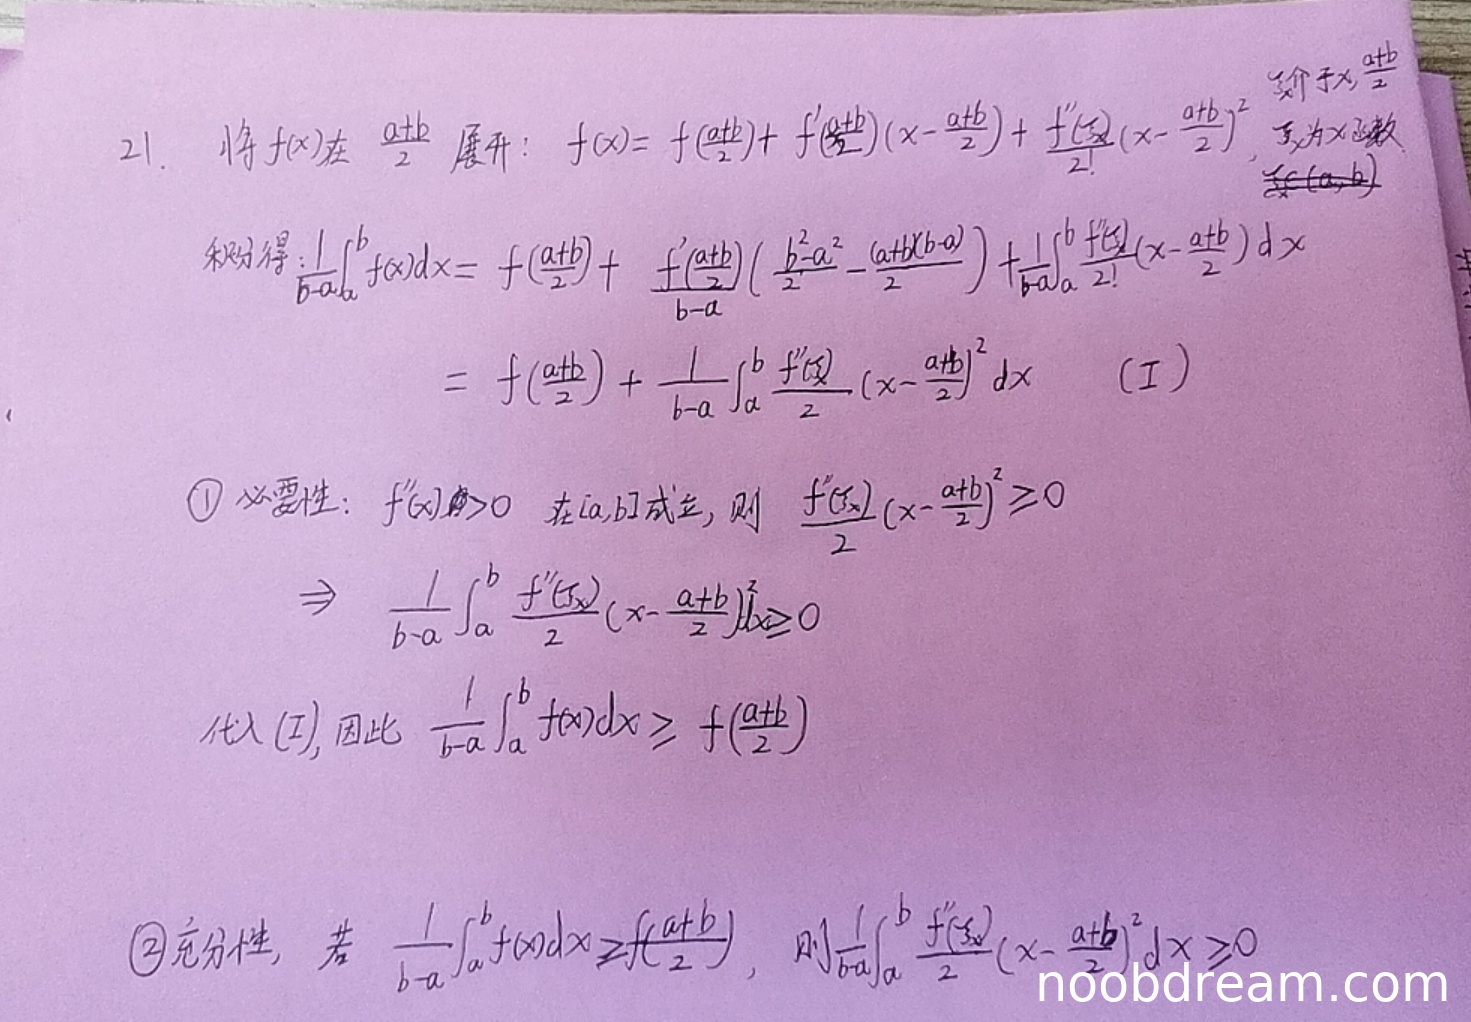 21. 将 f(x) 在 (a+b)/2 展开: f(x) = f((a+b)/2) + f'((a+b)/2)(x - (a+b)/2) + f''(ξx)/2! (x - (a+b)/2)², ξx介于x, (a+b)/2
ξx为x函数
积分得: 1/(b-a) ∫_a^b f(x)dx = f((a+b)/2) + f'((a+b)/2)/(b-a) ( (b²-a²)/2 - (a+b)(b-a)/2 ) + 1/(b-a) ∫_a^b f''(ξx)/2! (x - (a+b)/2) dx
= f((a+b)/2) + 1/(b-a) ∫_a^b f''(ξx)/2 (x - (a+b)/2)² dx (I)
① 必要性: f''(x) >0 在[a,b]成立, 则 f''(ξx)/2 (x - (a+b)/2)² ≥ 0
⇒ 1/(b-a) ∫_a^b f''(ξx)/2 (x - (a+b)/2)² dx ≥ 0
代入(I), 因此 1/(b-a) ∫_a^b f(x)dx ≥ f((a+b)/2)
② 充分性, 若 1/(b-a) ∫_a^b f(x)dx ≥ f((a+b)/2), 则 1/(b-a) ∫_a^b f''(ξx)/2 (x - (a+b)/2)² dx ≥ 0
noobdream.com